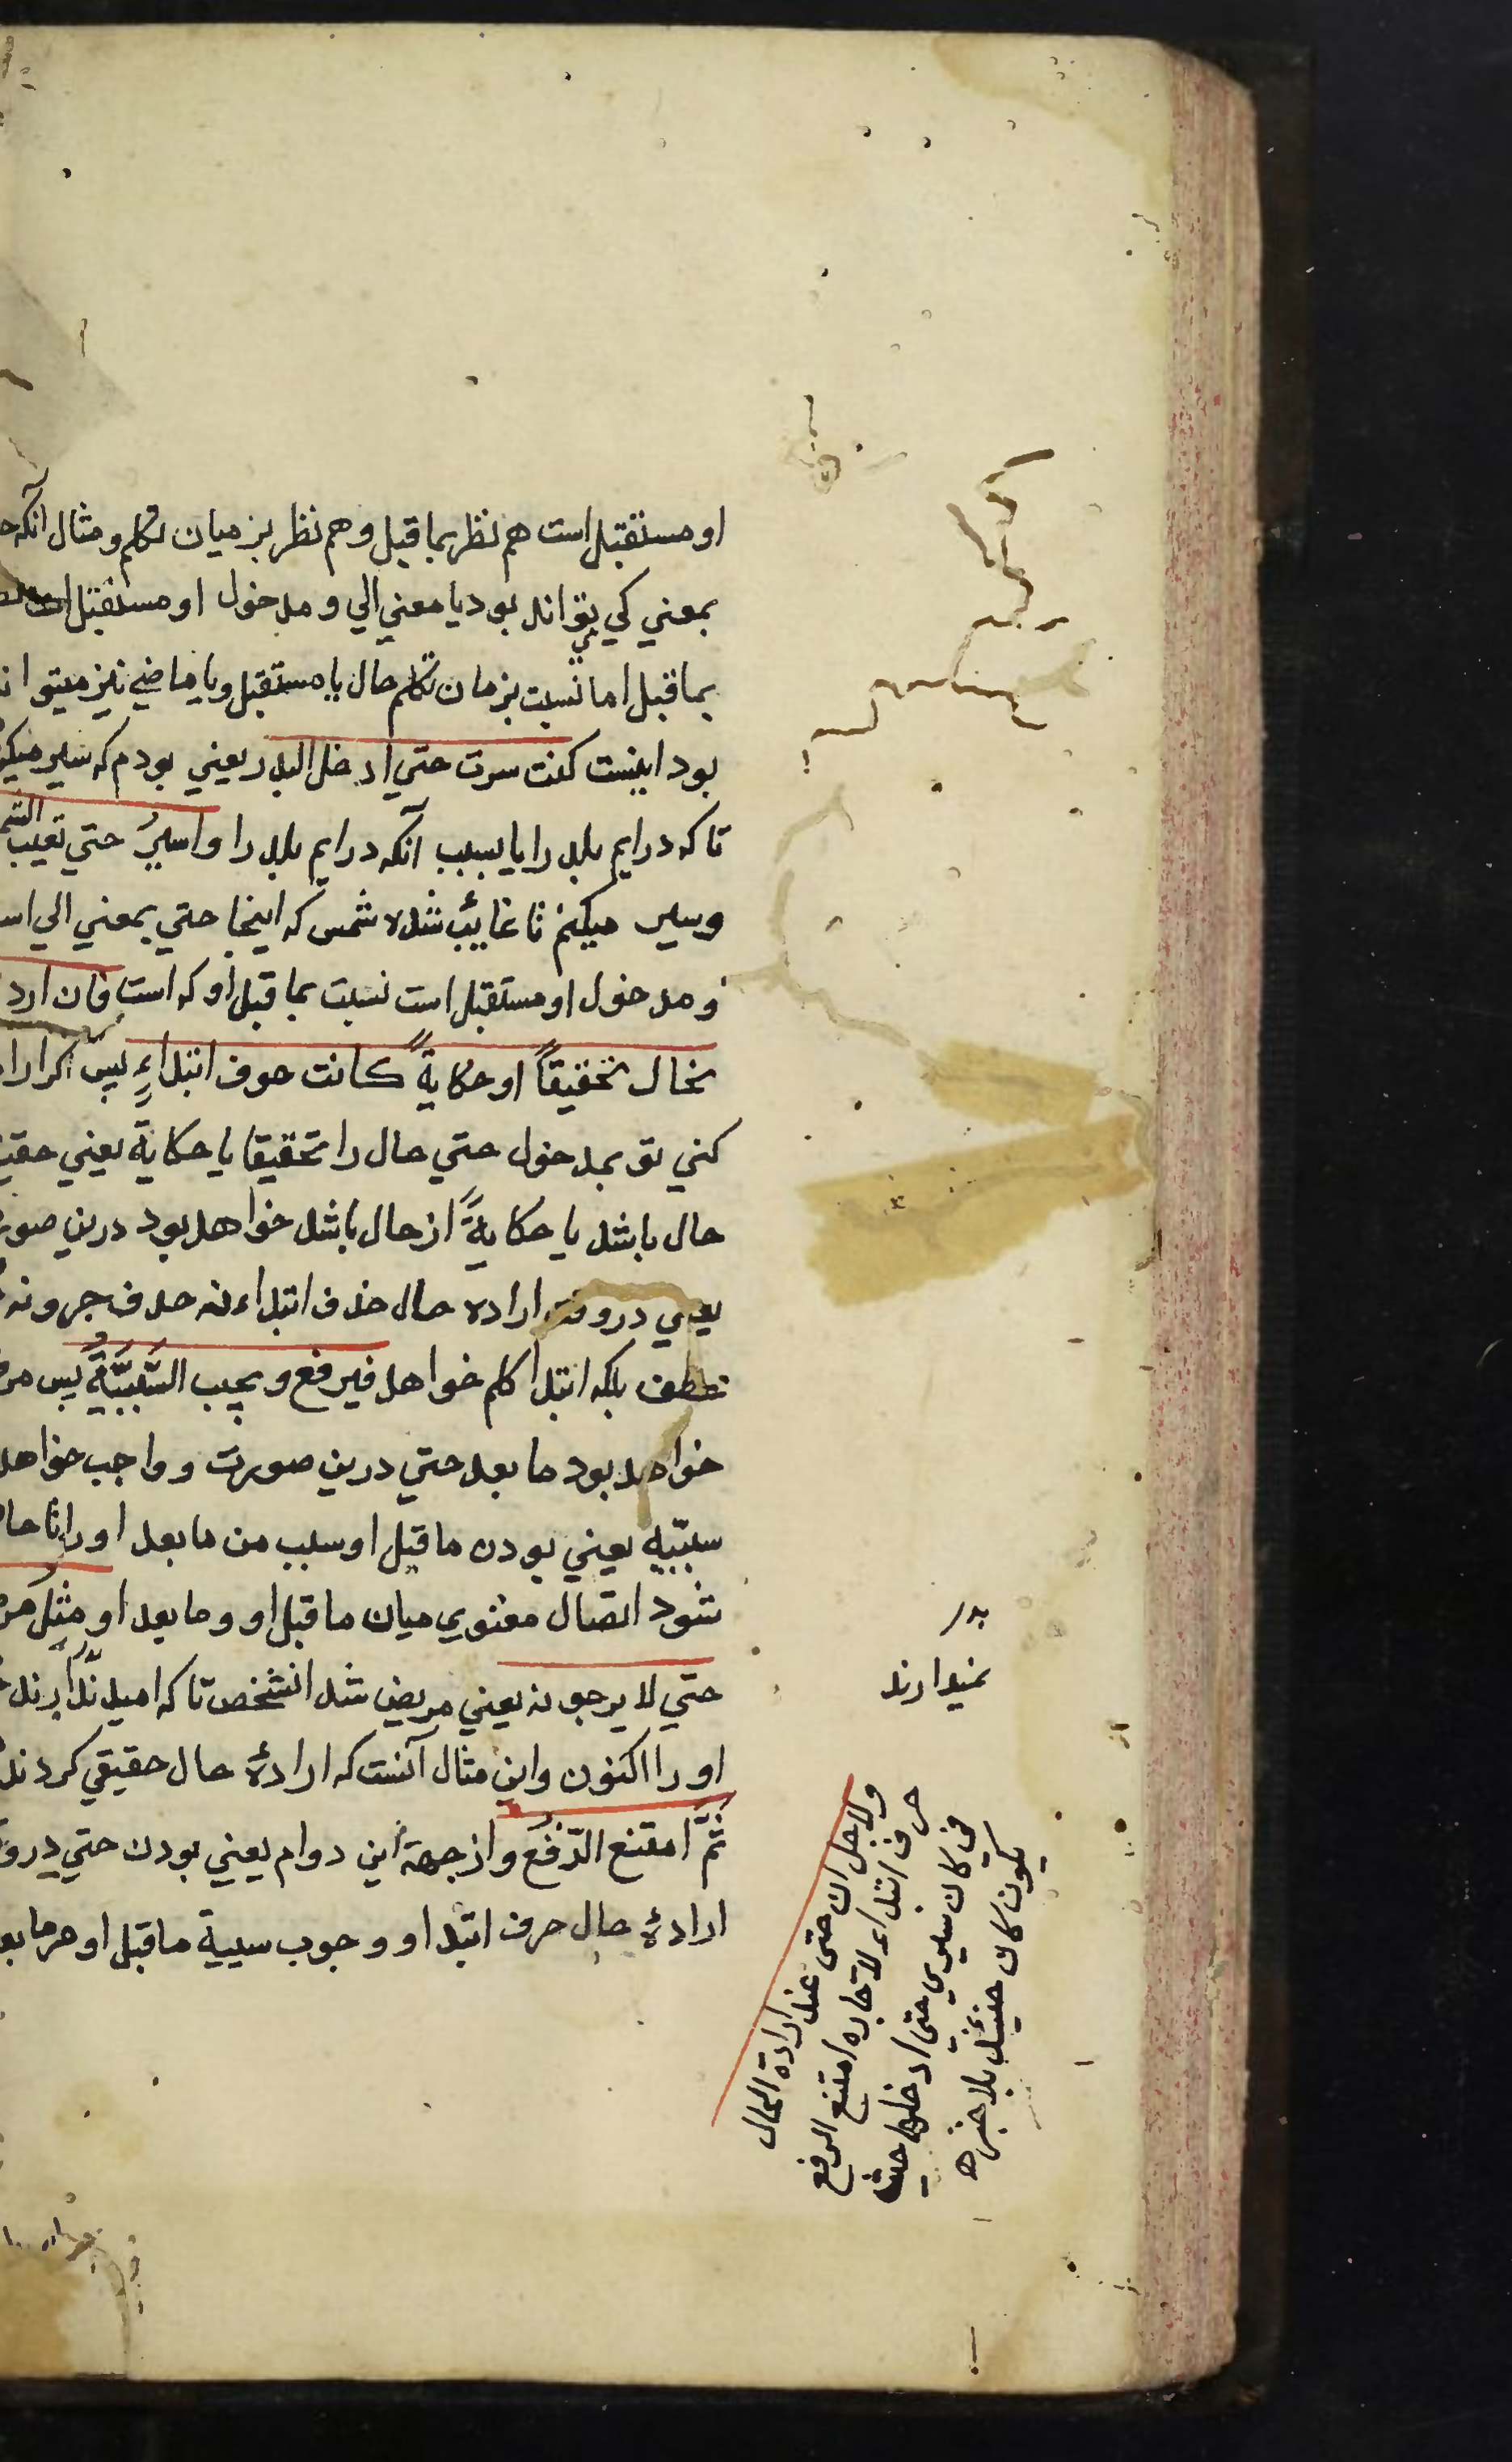 او مستقبل است هم نظر بما قبل و هم نظر بزمیان تکلم و مثال آنکه
بمعني کي بتواند بود یا معني الي و مدخول او مستقبل است
بما قبل اما نسبت بزمان تکلم حال یا مستقبل و یا ماضي نیز میتواند
بود اینست کنت سرت حتي ادخل البلد یعني بودم که سیر میکر
تا که درایم بلد را یا بسبب آنکه درایم بلد را و اسیرُ حتي تغیب الشم
وسیر میکنم تا غایئب شده شمس که اینجا حتي بمعني الي اس
و مدخول او مستقبل است نسبت بما قبل او که است فان ارد
بخال تحقیقاً او حکایةً کانت حرف ابتداءٍ پس اگر ارا
کني تو بمدخول حتي حال را تحقیقا یا حکایة یعني حقی
حال باشد یا حکایةً از حال باشد خواهد بود درین صور
یعني در وقت اراده حال حذف ابتداء نه حدف جر و نه
عطف بلکه ابتدا کلم خواهد فیرفع و یجب السَّبَبیَّةُ پس مر
خواهد بود ما بعد حتي درین صورت و واجب خواهد
سببّیه یعني بودن ما قبل او سبب من ما بعد او را تا حا
شود اتصال معنوي میان ما قبل او و ما بعد او مثل مر
حتي لا یرجونه یعني مریض شد انشخص تا که امید ندارند
او را اکنون و این مثال آنست که ارادهٔ حال حقیقي کردند
ثَمَّ امتنع الرّفعُ و از جهة این دوام یعني بودن حتي در و
ارادهٔ حال حرف ابتدا و و جوب سببیة ما قبل او مر ما بع
بدر
نمیدارند
ولاجل ان حتی عند ارادة الحال
حرف ابتداء لا جاره امتنع الرفع
في کان سیري حتي ادخلها حیث
یکون کان حینئذ بلا خبر ه